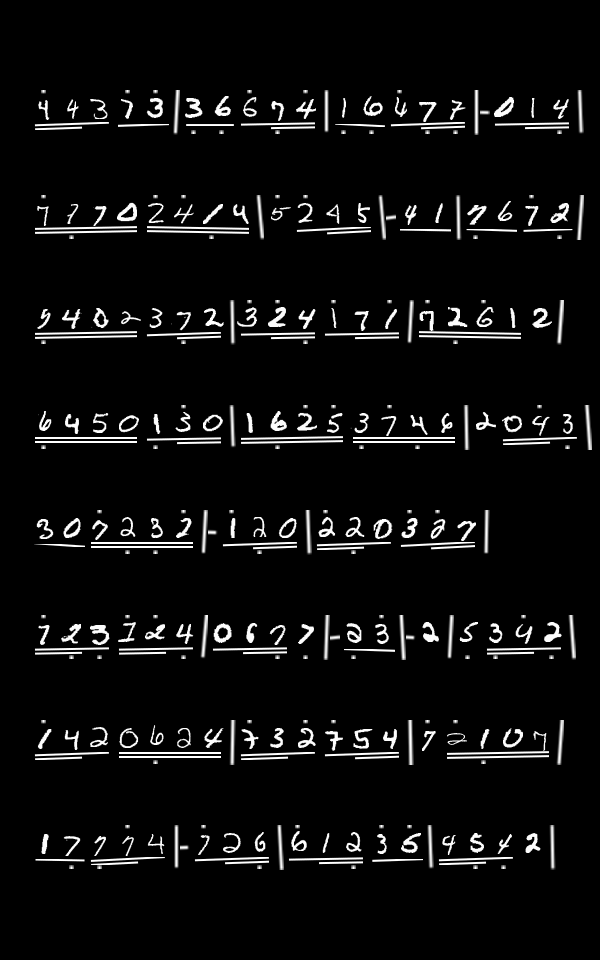 4 4 3 7 3 | 3 6 6 7 4 | 1 6 4 7 7 | - 0 1 4 |
7 7 7 0 2 4 1 4 | 5 2 4 5 | - 4 1 | 7 6 7 2 |
9 4 0 2 3 7 2 | 3 2 4 1 7 1 | 7 2 6 1 2 |
6 4 5 0 1 3 0 | 1 6 2 5 3 7 4 6 | 2 0 4 3 |
3 0 7 2 3 2 | - 1 2 0 | 2 2 0 3 2 7 |
7 2 3 1 2 4 | 0 6 7 7 | - 2 3 | - 2 | 5 3 4 2 |
1 4 2 0 6 2 4 | 7 3 2 7 5 4 | 7 2 1 0 7 |
1 7 7 7 4 | - 7 2 6 | 6 1 2 3 5 | 4 5 4 2 |